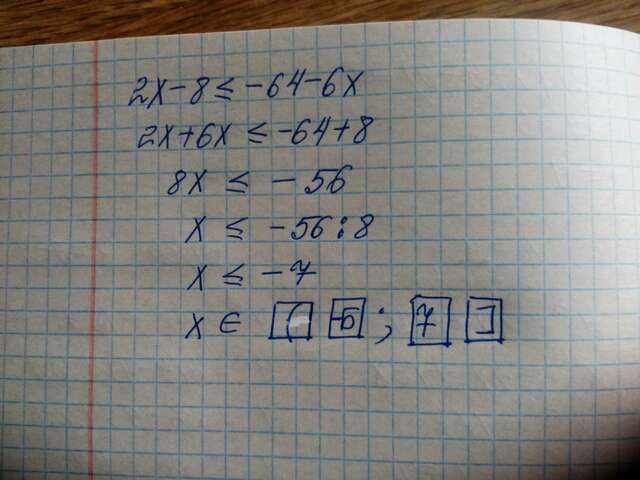 2x-8≤-64-6x
2x+6x≤-64+8
8x≤-56
x≤-56:8
x≤-7
x∈ ( ; 7 ]